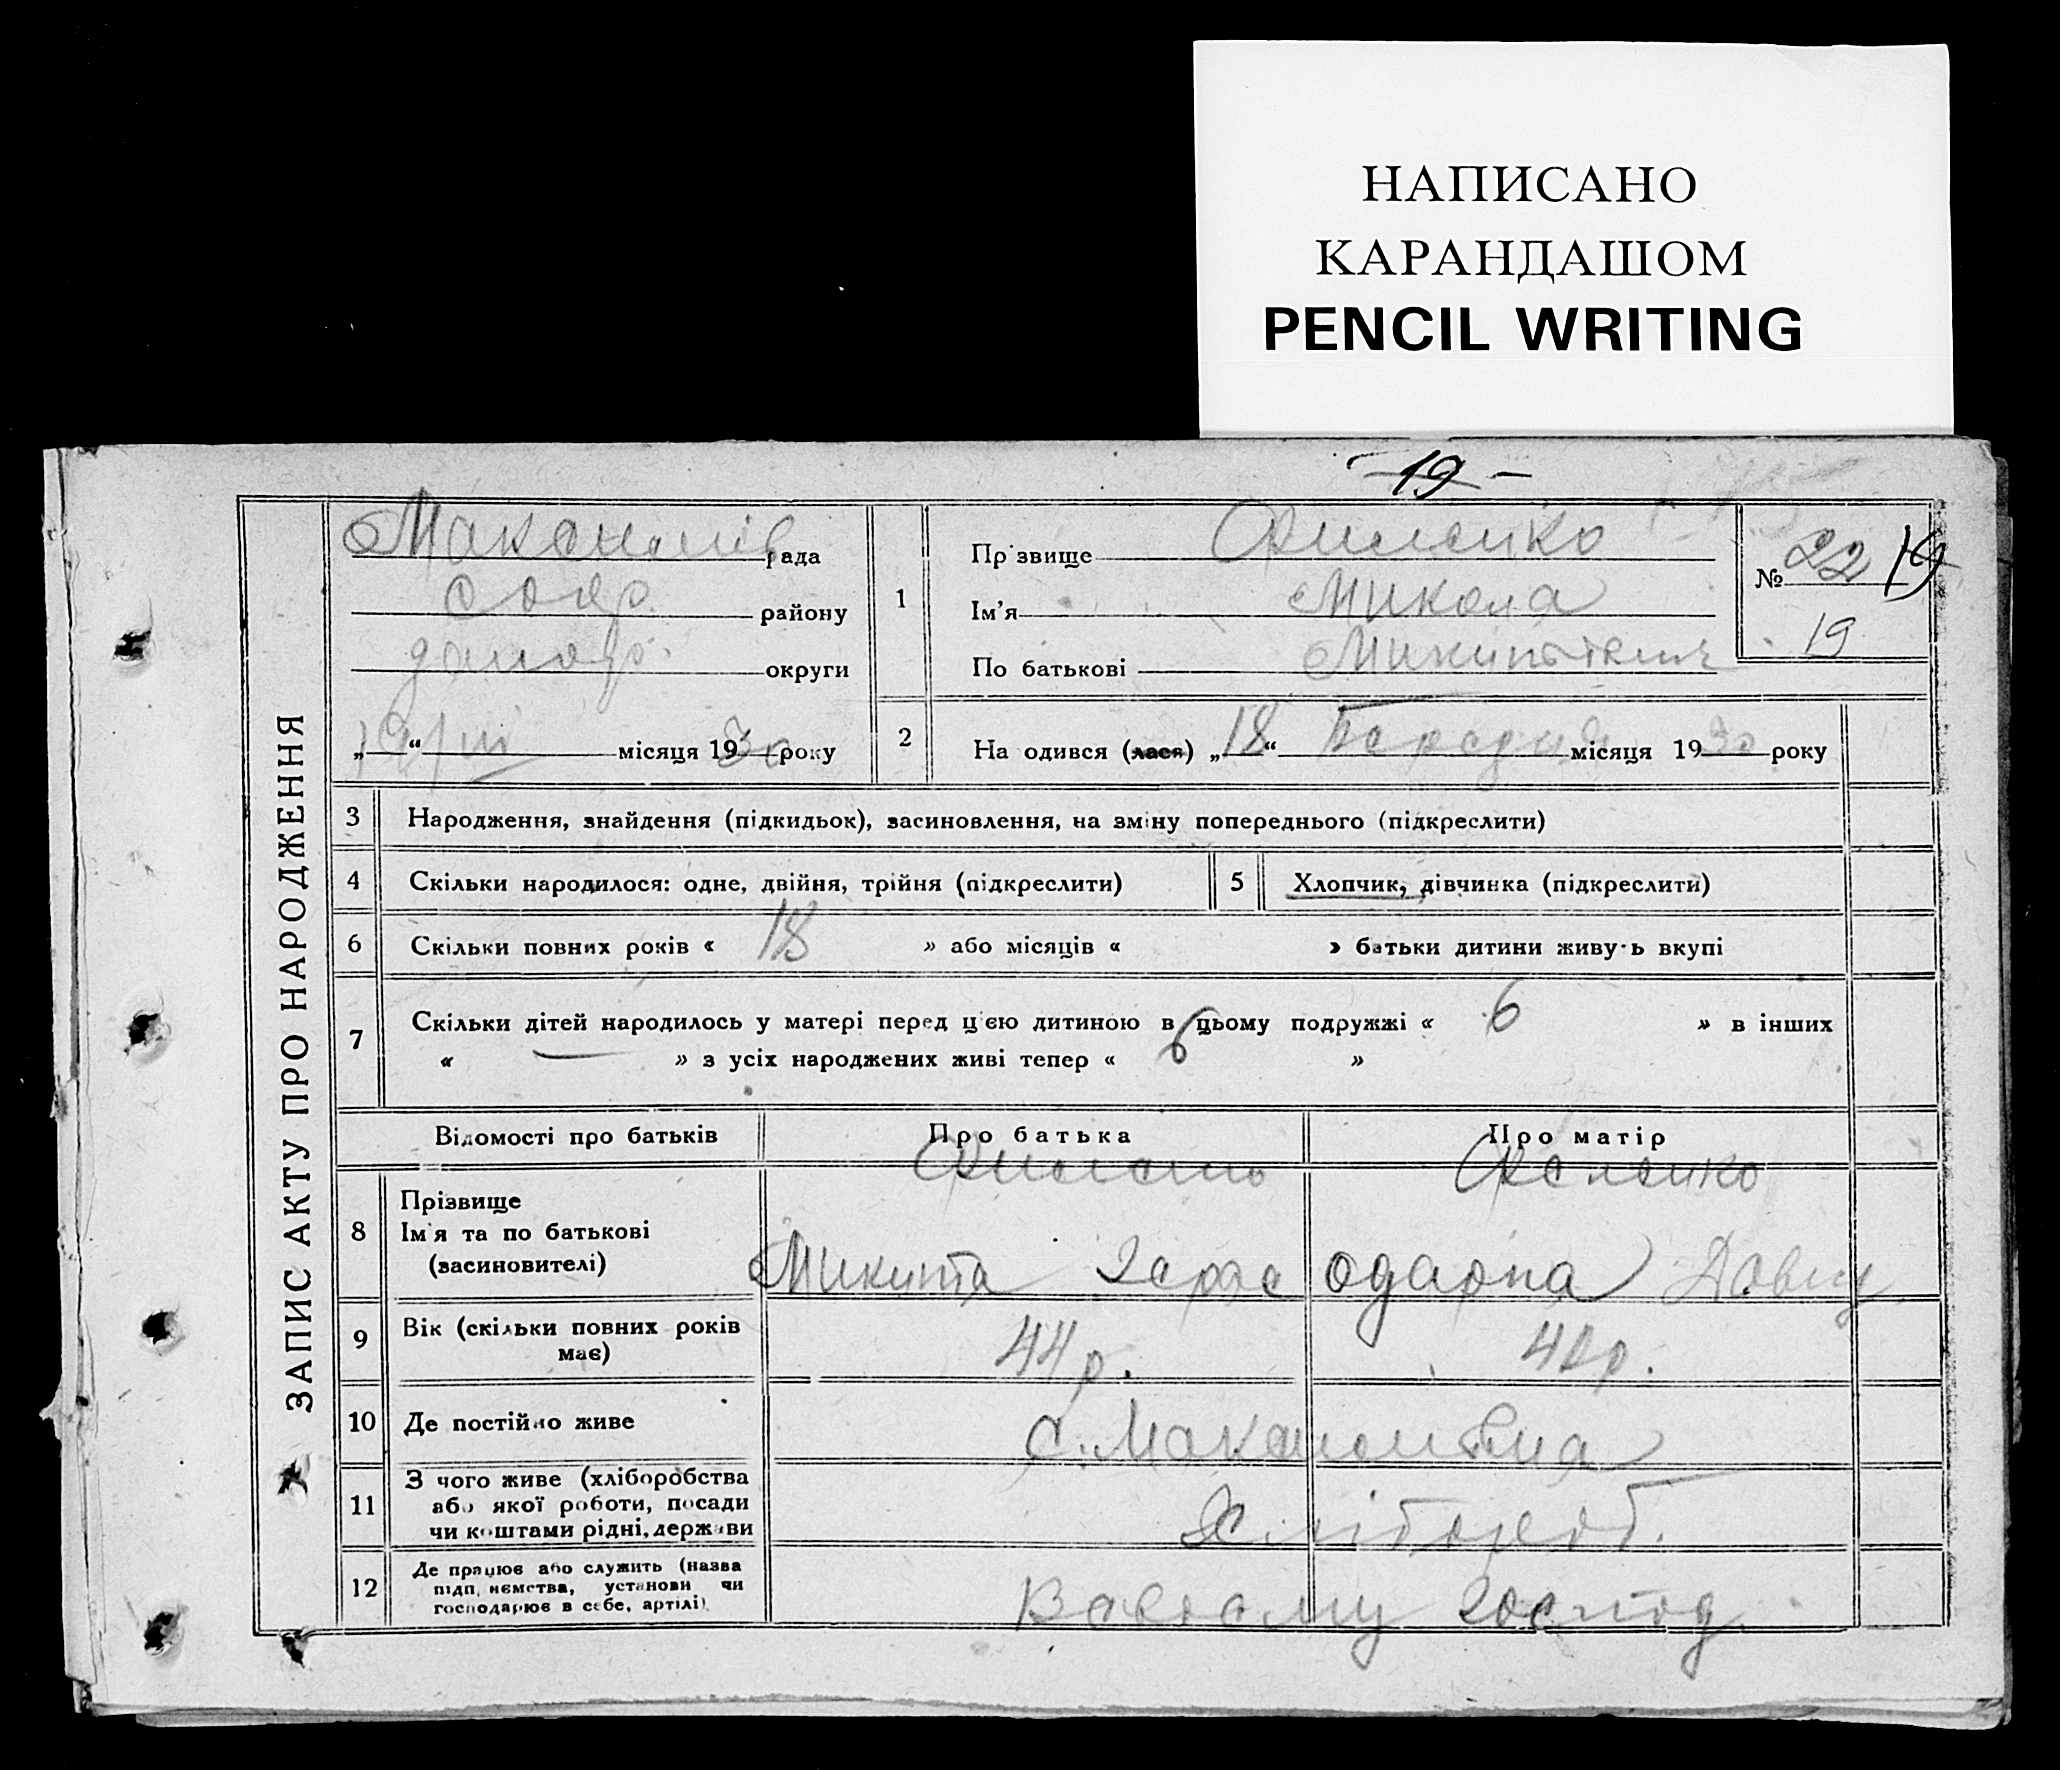 НАПИСАНО
КАРАНДАШОМ
PENCIL WRITING
- 19 -
ЗАПИС АКТУ ПРО НАРОДЖЕННЯ
рада
району
округи
„19“ III місяця 1930 року
1
Прізвище Филенко
Ім'я Микола
По батькові Микитович
№ 22 19
19
2
На одився (лася) „18“ Березня місяця 1930 року
3 Народження, знайдення (підкидьок), засиновлення, на зміну попереднього (підкреслити)
4 Скільки народилося: одне, двійня, трійня (підкреслити)
5 Хлопчик, дівчинка (підкреслити)
6 Скільки повних років « 18 » або місяців « » батьки дитини живуть вкупі
7 Скільки дітей народилось у матері перед цією дитиною в цьому подружжі « 6 » в інших
« — » з усіх народжених живі тепер « 6 »
Відомості про батьків Про батька Про матір
8 Прізвище
Ім'я та по батькові
(засиновителі)
Микита Одарка
9 Вік (скільки повних років
має)
44 р.
10 Де постійно живе
11 З чого живе (хліборобства
або якої роботи, посади
чи коштами рідні, держави
Хлібороб.
12 Де працює або служить (назва
підприємства, установи чи
господарює в себе, артілі)
В своєму господ.